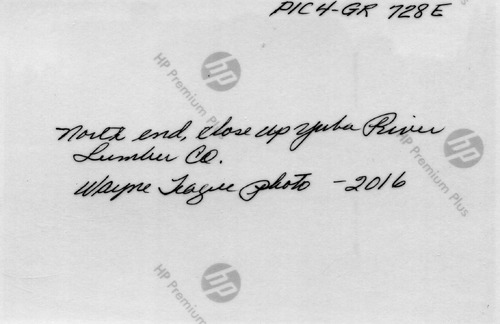 PIC4-GR 728E
hp
HP Premium Plus
North end, close up Yuba River
Lumber Co.
hp
HP Premium Plus
Wayne Teague photo - 2016
hp
HP Premium Plus